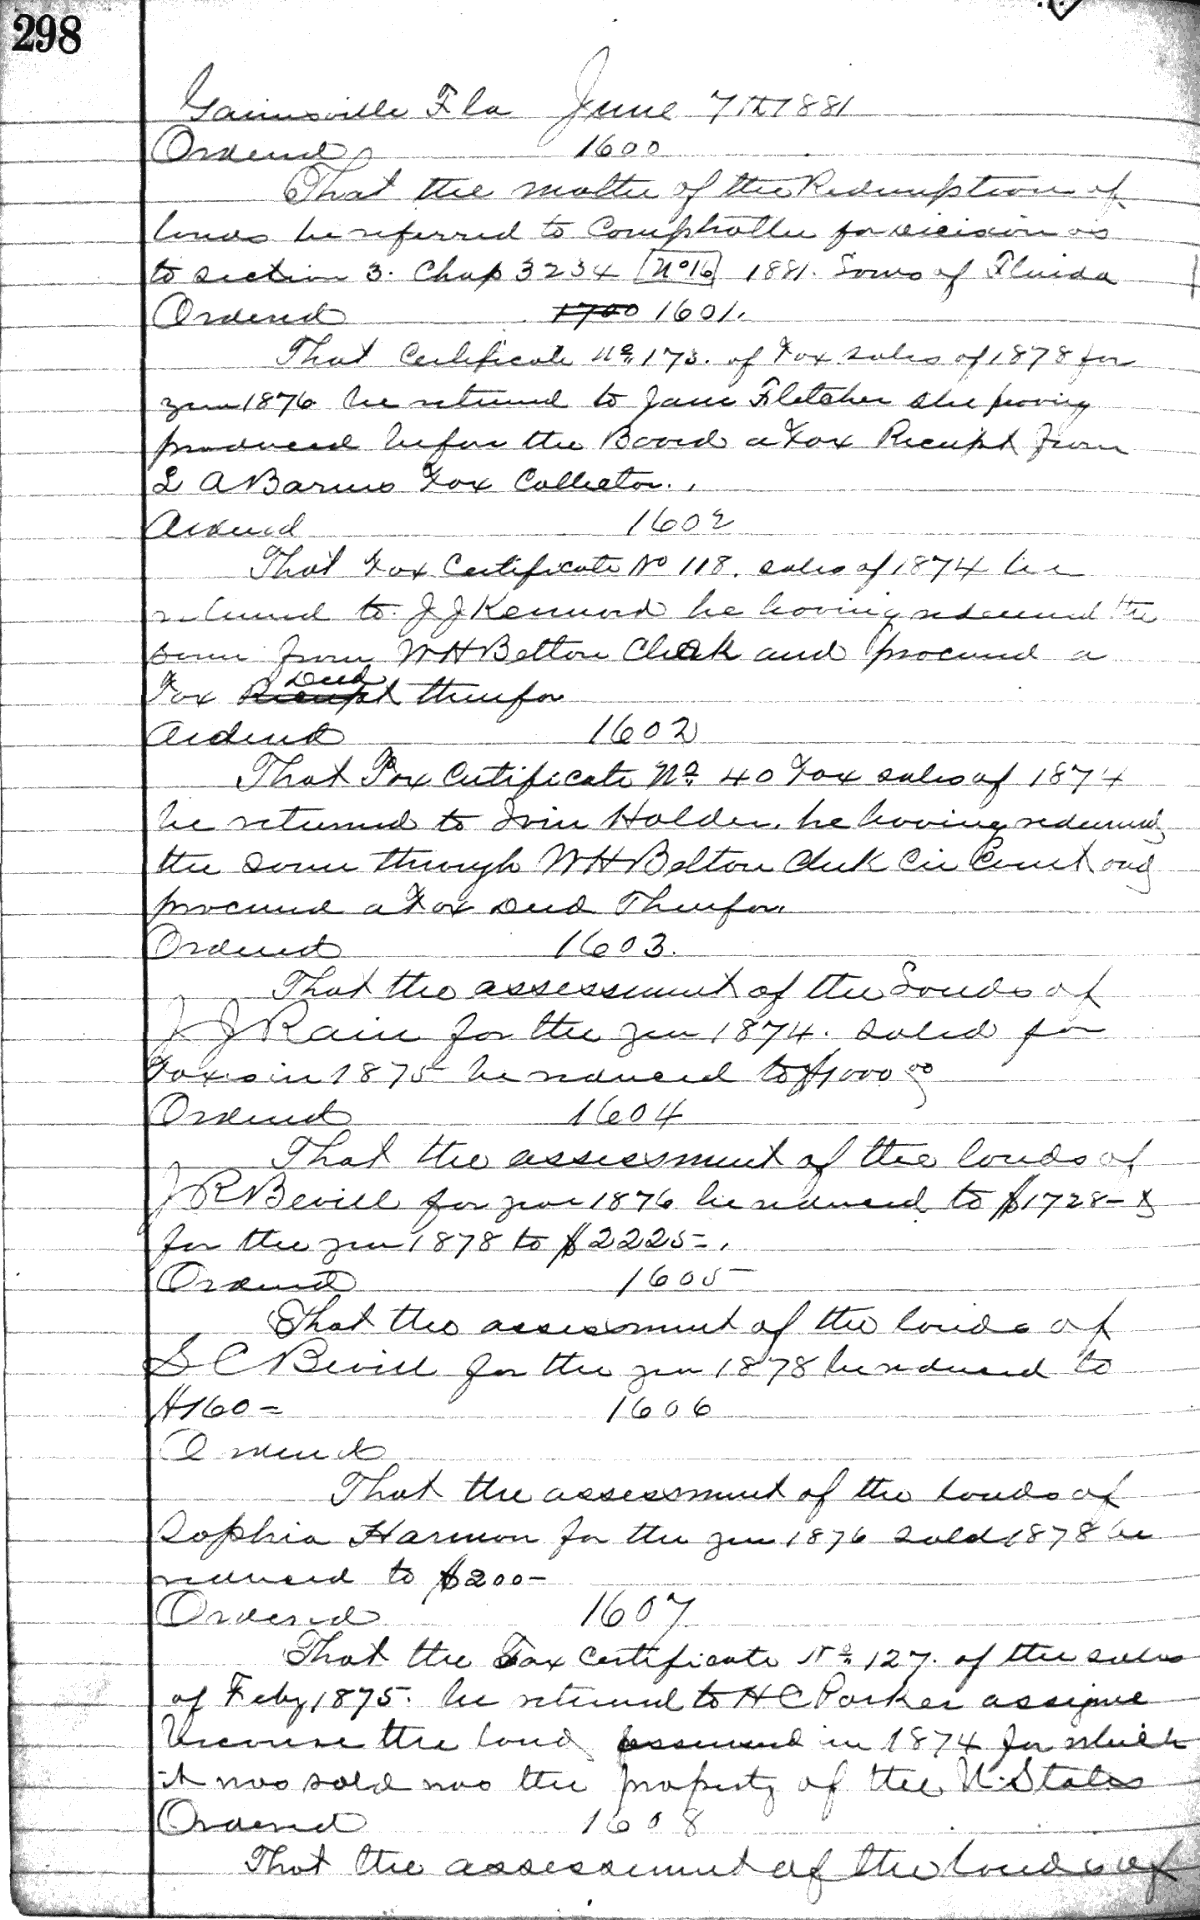 298
Gainsville Fla June 7th 1881
Ordered 1600
That the matter of the Redemption of
lands be referred to Comptroller for decision as
to section 3. Chap 3234 No 16 1881. Laws of Florida
Ordered 1700 1601.
That Certificate No 173. of Tax sales of 1878 for
year 1876 be returned to Jane Fletcher she having
produced before the Board a Tax Receipt from
L A Barnes Tax Collector.
Ordered 1602
That Tax Certificate No 118. sales of 1874 be
returned to J J Kennard he having redeemed the
same from W H Belton Clerk and procured a
Tax Receipt Deed therefor
Ordered 1602
That Tax Certificate No 40 Tax sales of 1874
be returned to Irvin Holder. he having redeemed
the same through W H Belton Clerk Cir Court and
procured a Tax Deed Therefor.
Ordered 1603.
That the assessment of the Lands of
J J Rain for the year 1874. Saled for
Taxes in 1875 be reduced to $1000 00
Ordered 1604
That the assessment of the lands of
J R Bevill for year 1876 be reduced to $1728- &
for the year 1878 to $2225=.
Ordered 1605
That the assessment of the lands of
S C Bevill for the year 1878 be reduced to
$160= 1606
Ordered
That the assessment of the lands of
Sophia Harmon for the year 1876 sold 1878 be
reduced to $200-
Ordered 1607
That the Tax Certificate No 127. of the sales
of Feby 1875. be returned to H C Parker assigne
Because the land assessed in 1874 for which
it was sold was the property of the U. States
Ordered 1608
That the assessment of the lands of